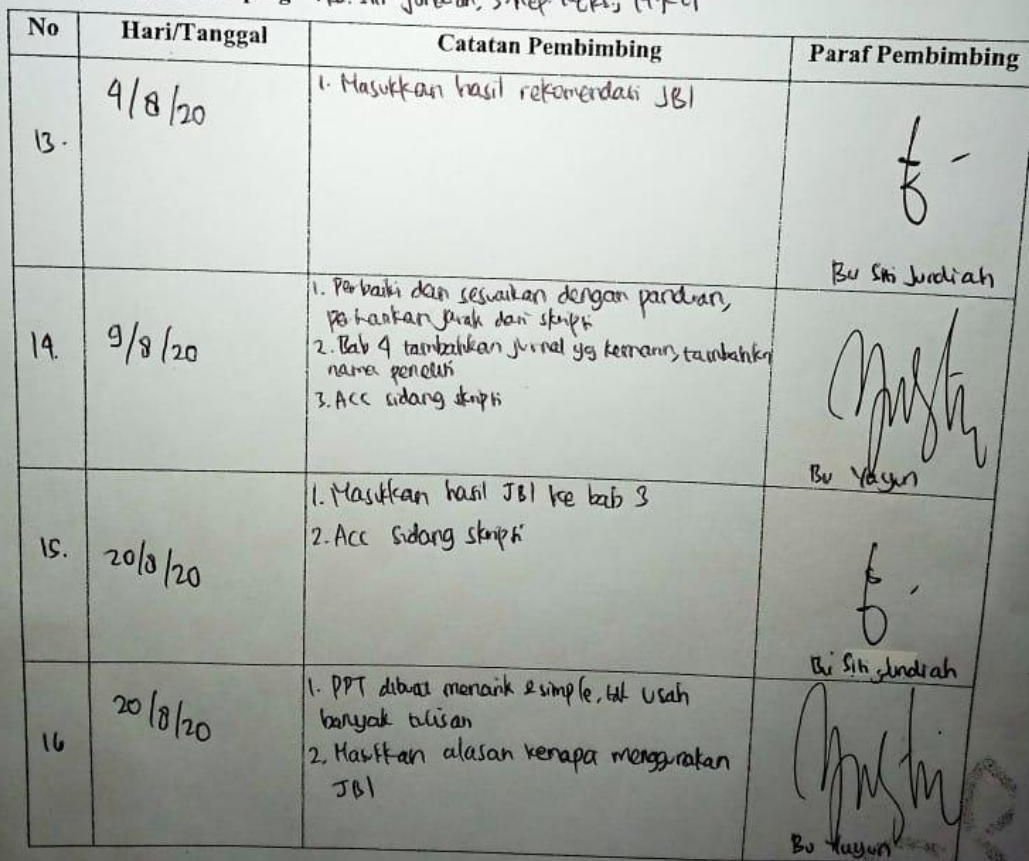 No Hari/Tanggal Catatan Pembimbing Paraf Pembimbing
13. 4/8/20 1. Masukkan hasil rekomendasi JBI
Bu Siti Jundiah
14. 9/8/20 1. Perbaiki dan sesuaikan dengan panduan,
dari skripsi
2. Bab 4 tambahkan jurnal yg
nama peneliti
3. Acc sidang skripsi
Bu Yayun
15. 20/8/20 1. Masukkan hasil JBI ke bab 3
2. Acc sidang skripsi
Bu Siti Jundiah
16 20/8/20 1. PPT dibuat menarik & simple, tak usah
banyak tulisan
2. Masukkan alasan kenapa menggunakan
JBI
Bu Yuyun